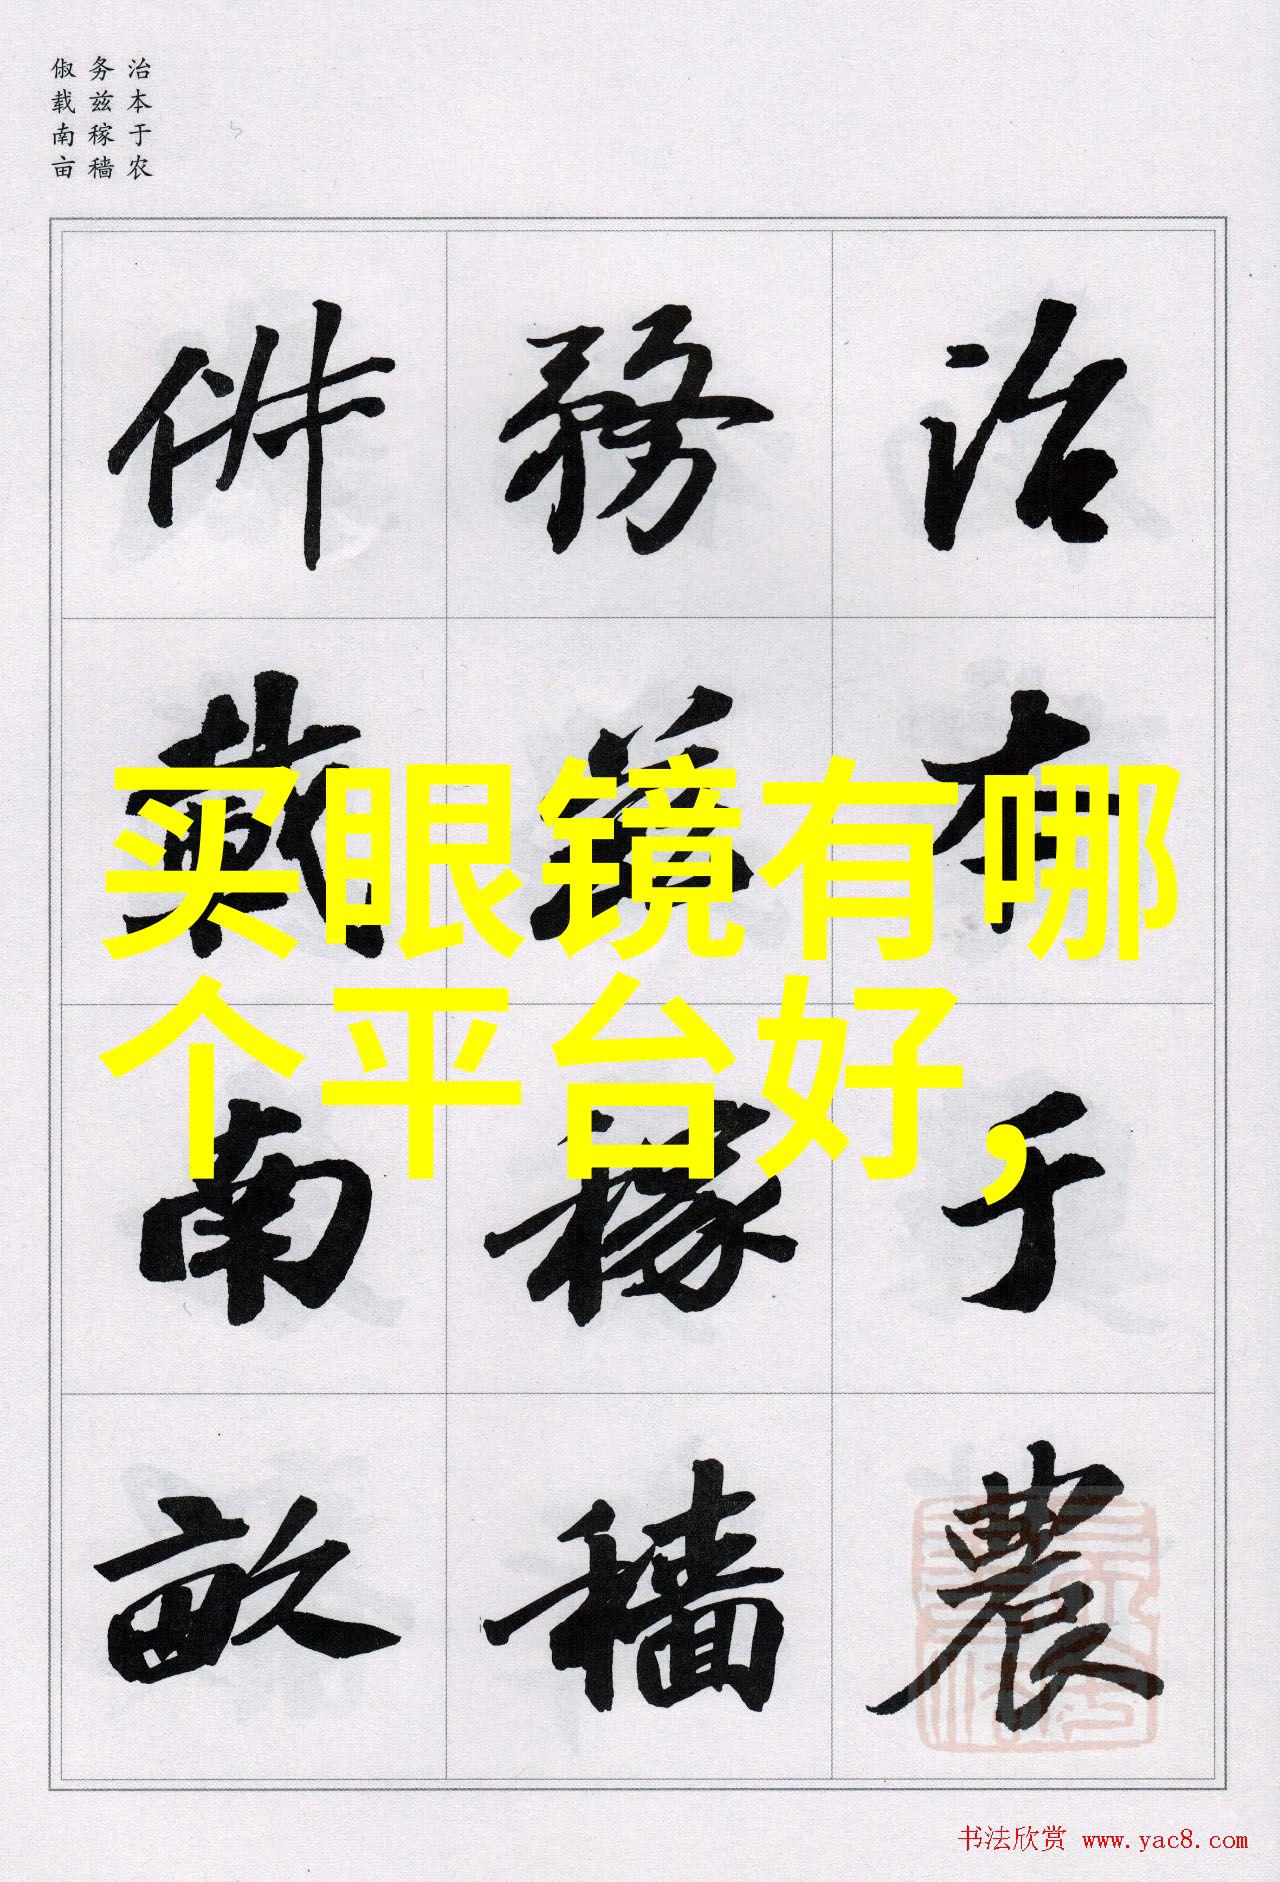 治本于农
务兹稼穑
俶载南亩
治本于農
務茲稼穡
俶載南畝
买眼镜有哪
个平台好，
书法欣赏 www.yac8.com